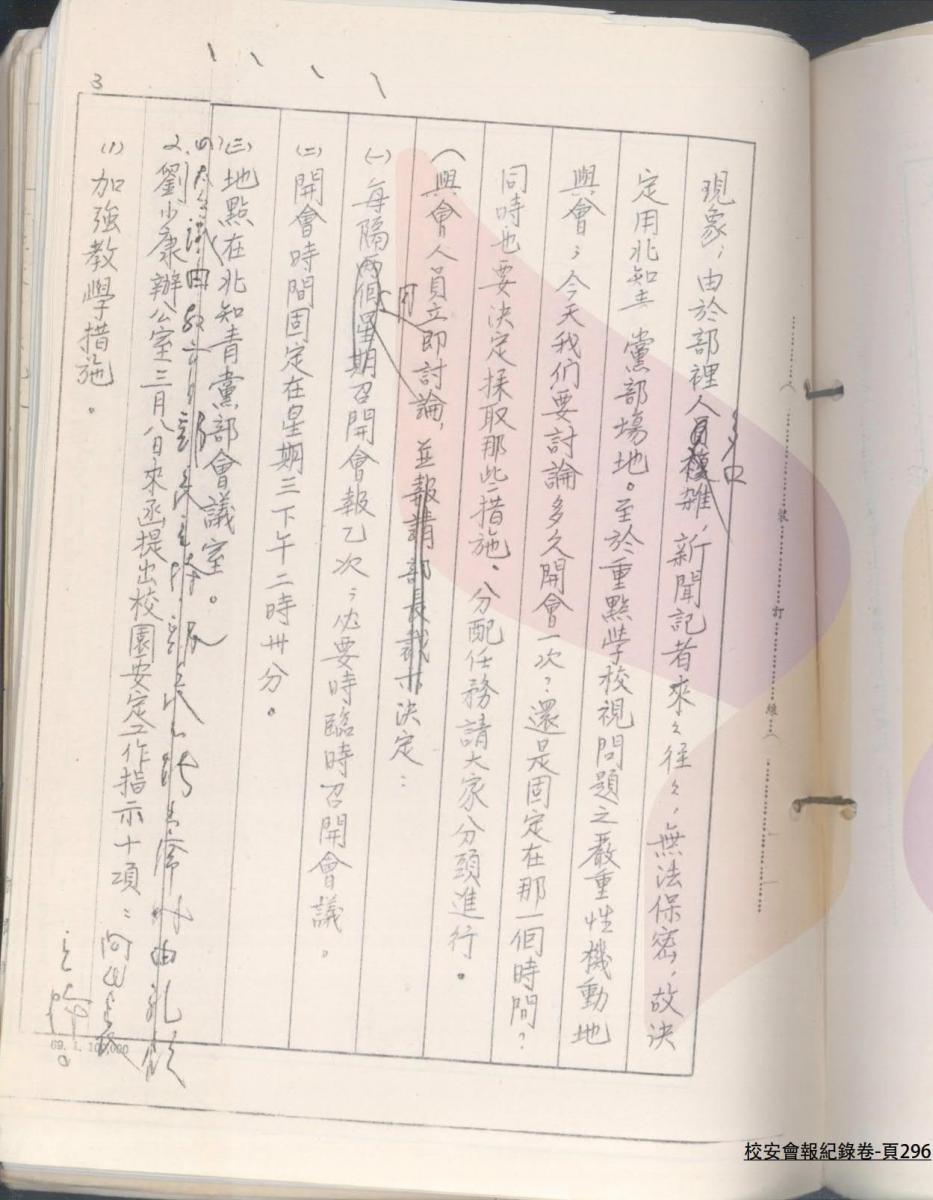 3
現象，由於部裡人員複雜，新聞記者來々往々，無法保密，故決
多
定用北知青黨部場地。至於重點學校視問題之嚴重性機動地
與會，今天我们要討論多久開會一次？還是固定在那一個時間？
同時也要決定採取那些措施、分配任務請大家分頭進行。
（與會人員立即討論，並報請部長裁示決定：
㈠每隔兩個星期召開會報乙次，必要時臨時召開會議。
周
㈡開會時間固定在星期三下午二時卅分。
㈢地點在北知青黨部會議室。
㈣
由
部
2.劉少康辦公室三月八日來函提出校園安定工作指示十項：
⑴加強教學措施。
裝
訂
線
69. 1. 100,000
校安會報紀錄卷-頁296